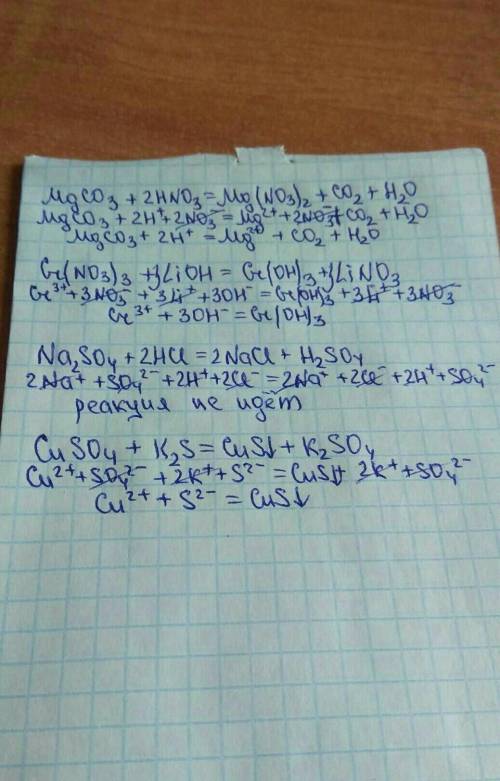 MgCO₃ + 2HNO₃ = Mg(NO₃)₂ + CO₂ + H₂O
MgCO₃ + 2H⁺ + 2NO₃⁻ = Mg²⁺ + 2NO₃⁻ + CO₂ + H₂O
MgCO₃ + 2H⁺ = Mg²⁺ + CO₂ + H₂O
Cr(NO₃)₃ + 3LiOH = Cr(OH)₃ + 3LiNO₃
Cr³⁺ + 3NO₃⁻ + 3Li⁺ + 3OH⁻ = Cr(OH)₃ + 3Li⁺ + 3NO₃⁻
Cr³⁺ + 3OH⁻ = Cr(OH)₃
Na₂SO₄ + 2HCl = 2NaCl + H₂SO₄
2Na⁺ + SO₄²⁻ + 2H⁺ + 2Cl⁻ = 2Na⁺ + 2Cl⁻ + 2H⁺ + SO₄²⁻
реакция не идёт
CuSO₄ + K₂S = CuS↓ + K₂SO₄
Cu²⁺ + SO₄²⁻ + 2K⁺ + S²⁻ = CuS↓ + 2K⁺ + SO₄²⁻
Cu²⁺ + S²⁻ = CuS↓